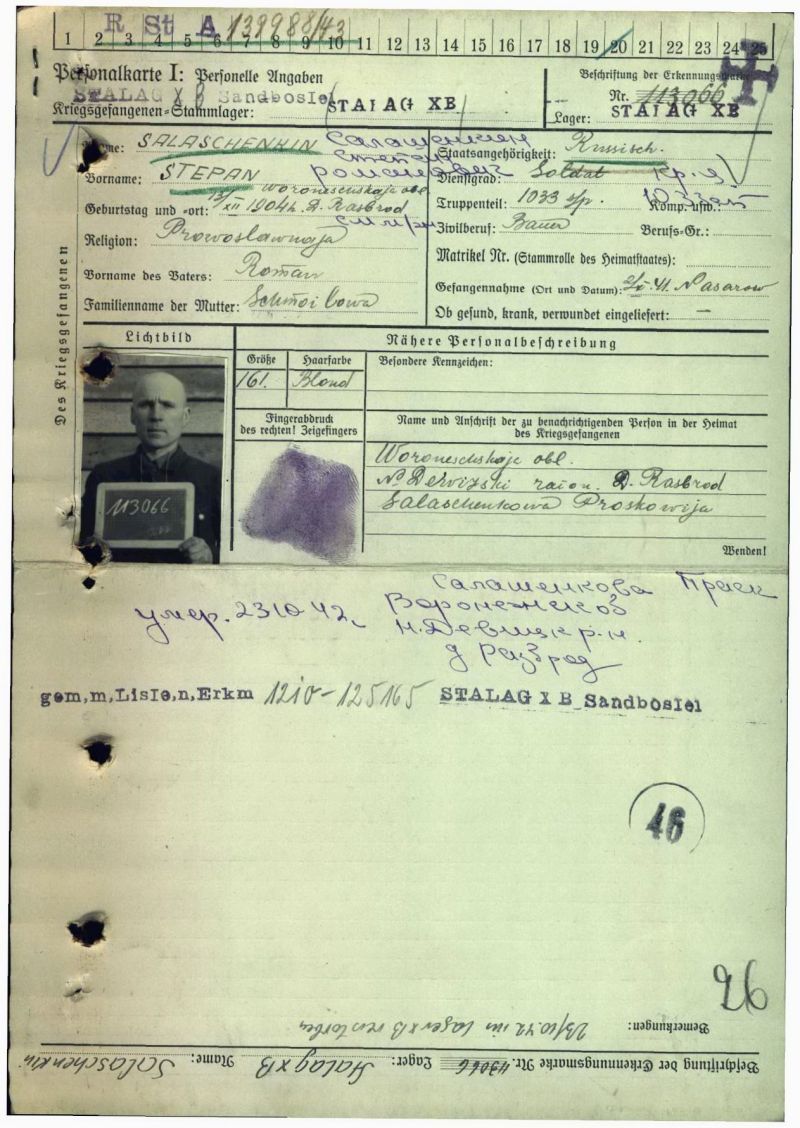 R St A 139988/43
1 2 3 4 5 6 7 8 9 10 11 12 13 14 15 16 17 18 19 20 21 22 23 24 25
Personalkarte I: Personelle Angaben
Beschriftung der Erkennungsmarke
STALAG X B Sandbostel
Nr. 113066
Kriegsgefangenen-Stammlager: STALAG XB
Lager: STALAG XB
Des Kriegsgefangenen
Name: SALASCHENKIN Салашенкин
Staatsangehörigkeit: Russisch.
Vorname: STEPAN Степан Романович
Dienstgrad: Soldat кр-ц
Woroneschskaje obl.
Geburtstag und -ort: 13/XII 1904 D. Rasbrod
Truppenteil: 1033 s/p. Komp. usw.:
Religion: Prawoslawnaja
Zivilberuf: Bauer Berufs-Gr.:
Vorname des Vaters: Roman
Matrikel Nr. (Stammrolle des Heimatstaates):
Familienname der Mutter:
Gefangennahme (Ort und Datum): 41. Nasarow
Ob gesund, krank, verwundet eingeliefert: —
Lichtbild
Nähere Personalbeschreibung
Größe Haarfarbe Besondere Kennzeichen:
161. Blond
Fingerabdruck
des rechten! Zeigefingers
Name und Anschrift der zu benachrichtigenden Person in der Heimat
des Kriegsgefangenen
Woroneschskaje obl.
N. Dewizski raion. D. Rasbrod
Salaschenkowa Proskowija
113066
Wenden!
Салашенкова Праск
умер. 23 10 42г. Воронежской
Н.Девицк р-н.
д Разброд
gem,m,Liste,n,Erkm 12io-125165 STALAG X B Sandbostel
46
26
Bemerkungen: 23/10.42 im Lager XB verstorben
Beschriftung der Erkennungsmarke Nr. 113066 Lager: Stalag XB Name: Salaschenkin